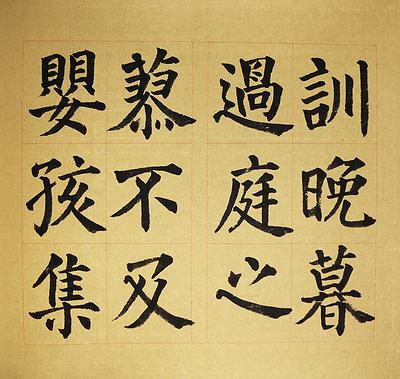 嬰孩集
蓼不及
過庭之
訓晚暮